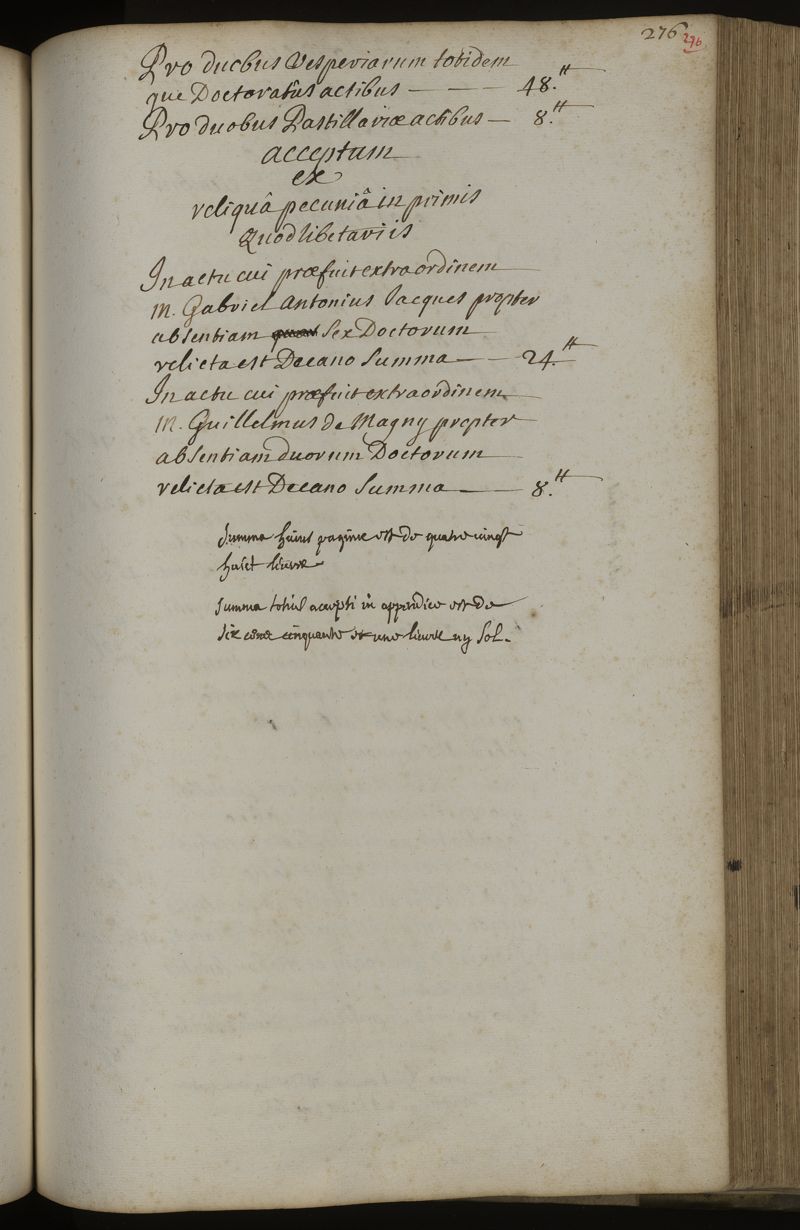 276 276
Pro duobus Vesperiarum totidem
que Doctoratûs actibus — — — 48.ᵗᵗ
Pro duobus Pastillariæ actibus — 8.ᵗᵗ
acceptum
ex
reliquâ pecuniâ in primis
Quodlibetariis
In actu cui præfuit extra ordinem
M. Gabriel Antonius Jacques propter
absentiam sex Doctorum
relicta est Decano Summa — — 24.ᵗᵗ
In actu cui præfuit extraordinem
M. Guillelmus de Magny propter
absentiam duorum Doctorum
relicta est Decano Summa — — 8.ᵗᵗ
Summa huius paginæ est de quatre vingt
huict livres
Summa totius accepti in appendice est de
six cens cinquante et une livre ny sol.